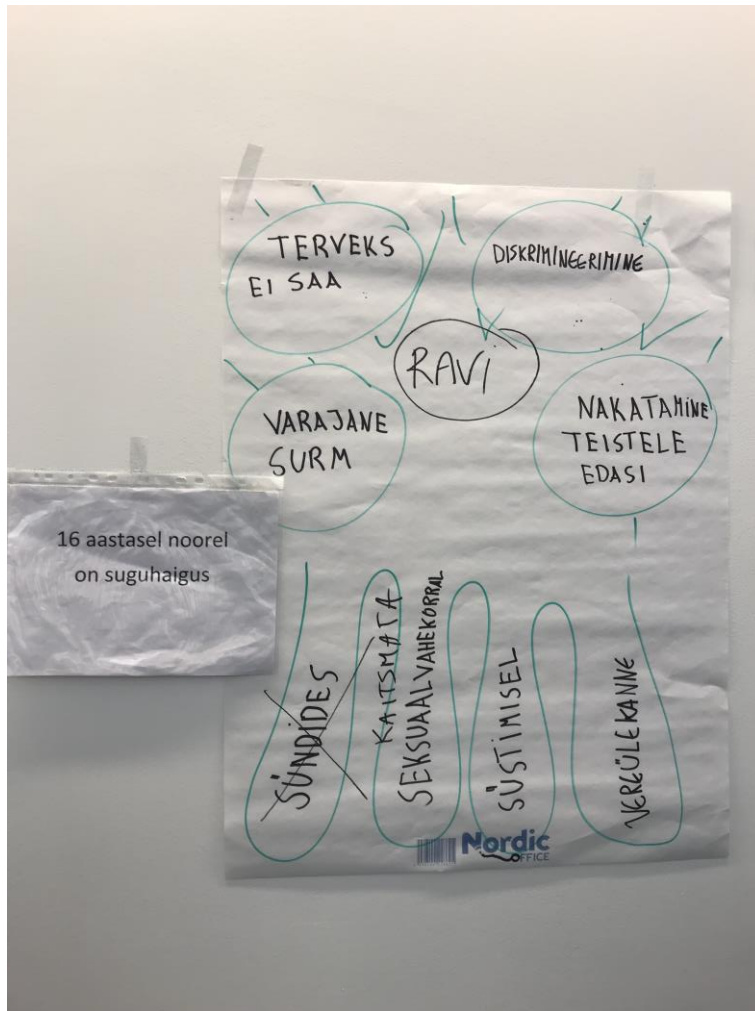 TERVEKS
EI SAA
DISKRIMINEERIMINE
RAVI
VARAJANE
SURM
NAKATAMINE
TEISTELE
EDASI
16 aastasel noorel
on suguhaigus
SÜNDIDES
KAITSMATA
SEKSUAALVAHEKORRAL
SÜSTIMISEL
VEREÜLEKANNE
Nordic
OFFICE